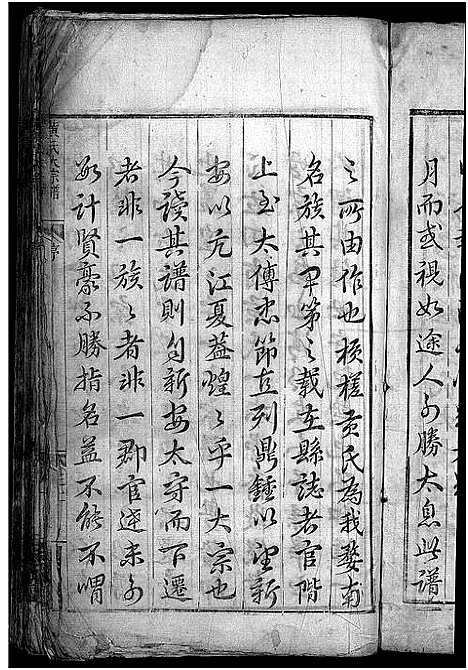 月而或視如途人可勝太息此譜
之所由作也槎黃氏為我婺南
名族其甲第之載在縣誌者官階
上至太傅忠節立列鼎鍾以望新
安以亢江夏葢煌〻乎一大宗也
今讀其譜則自新安太守而下遷
者非一族〻者非一郡官迹未可
數計賢豪不勝指名益不能不喟
黃氏宗譜
序